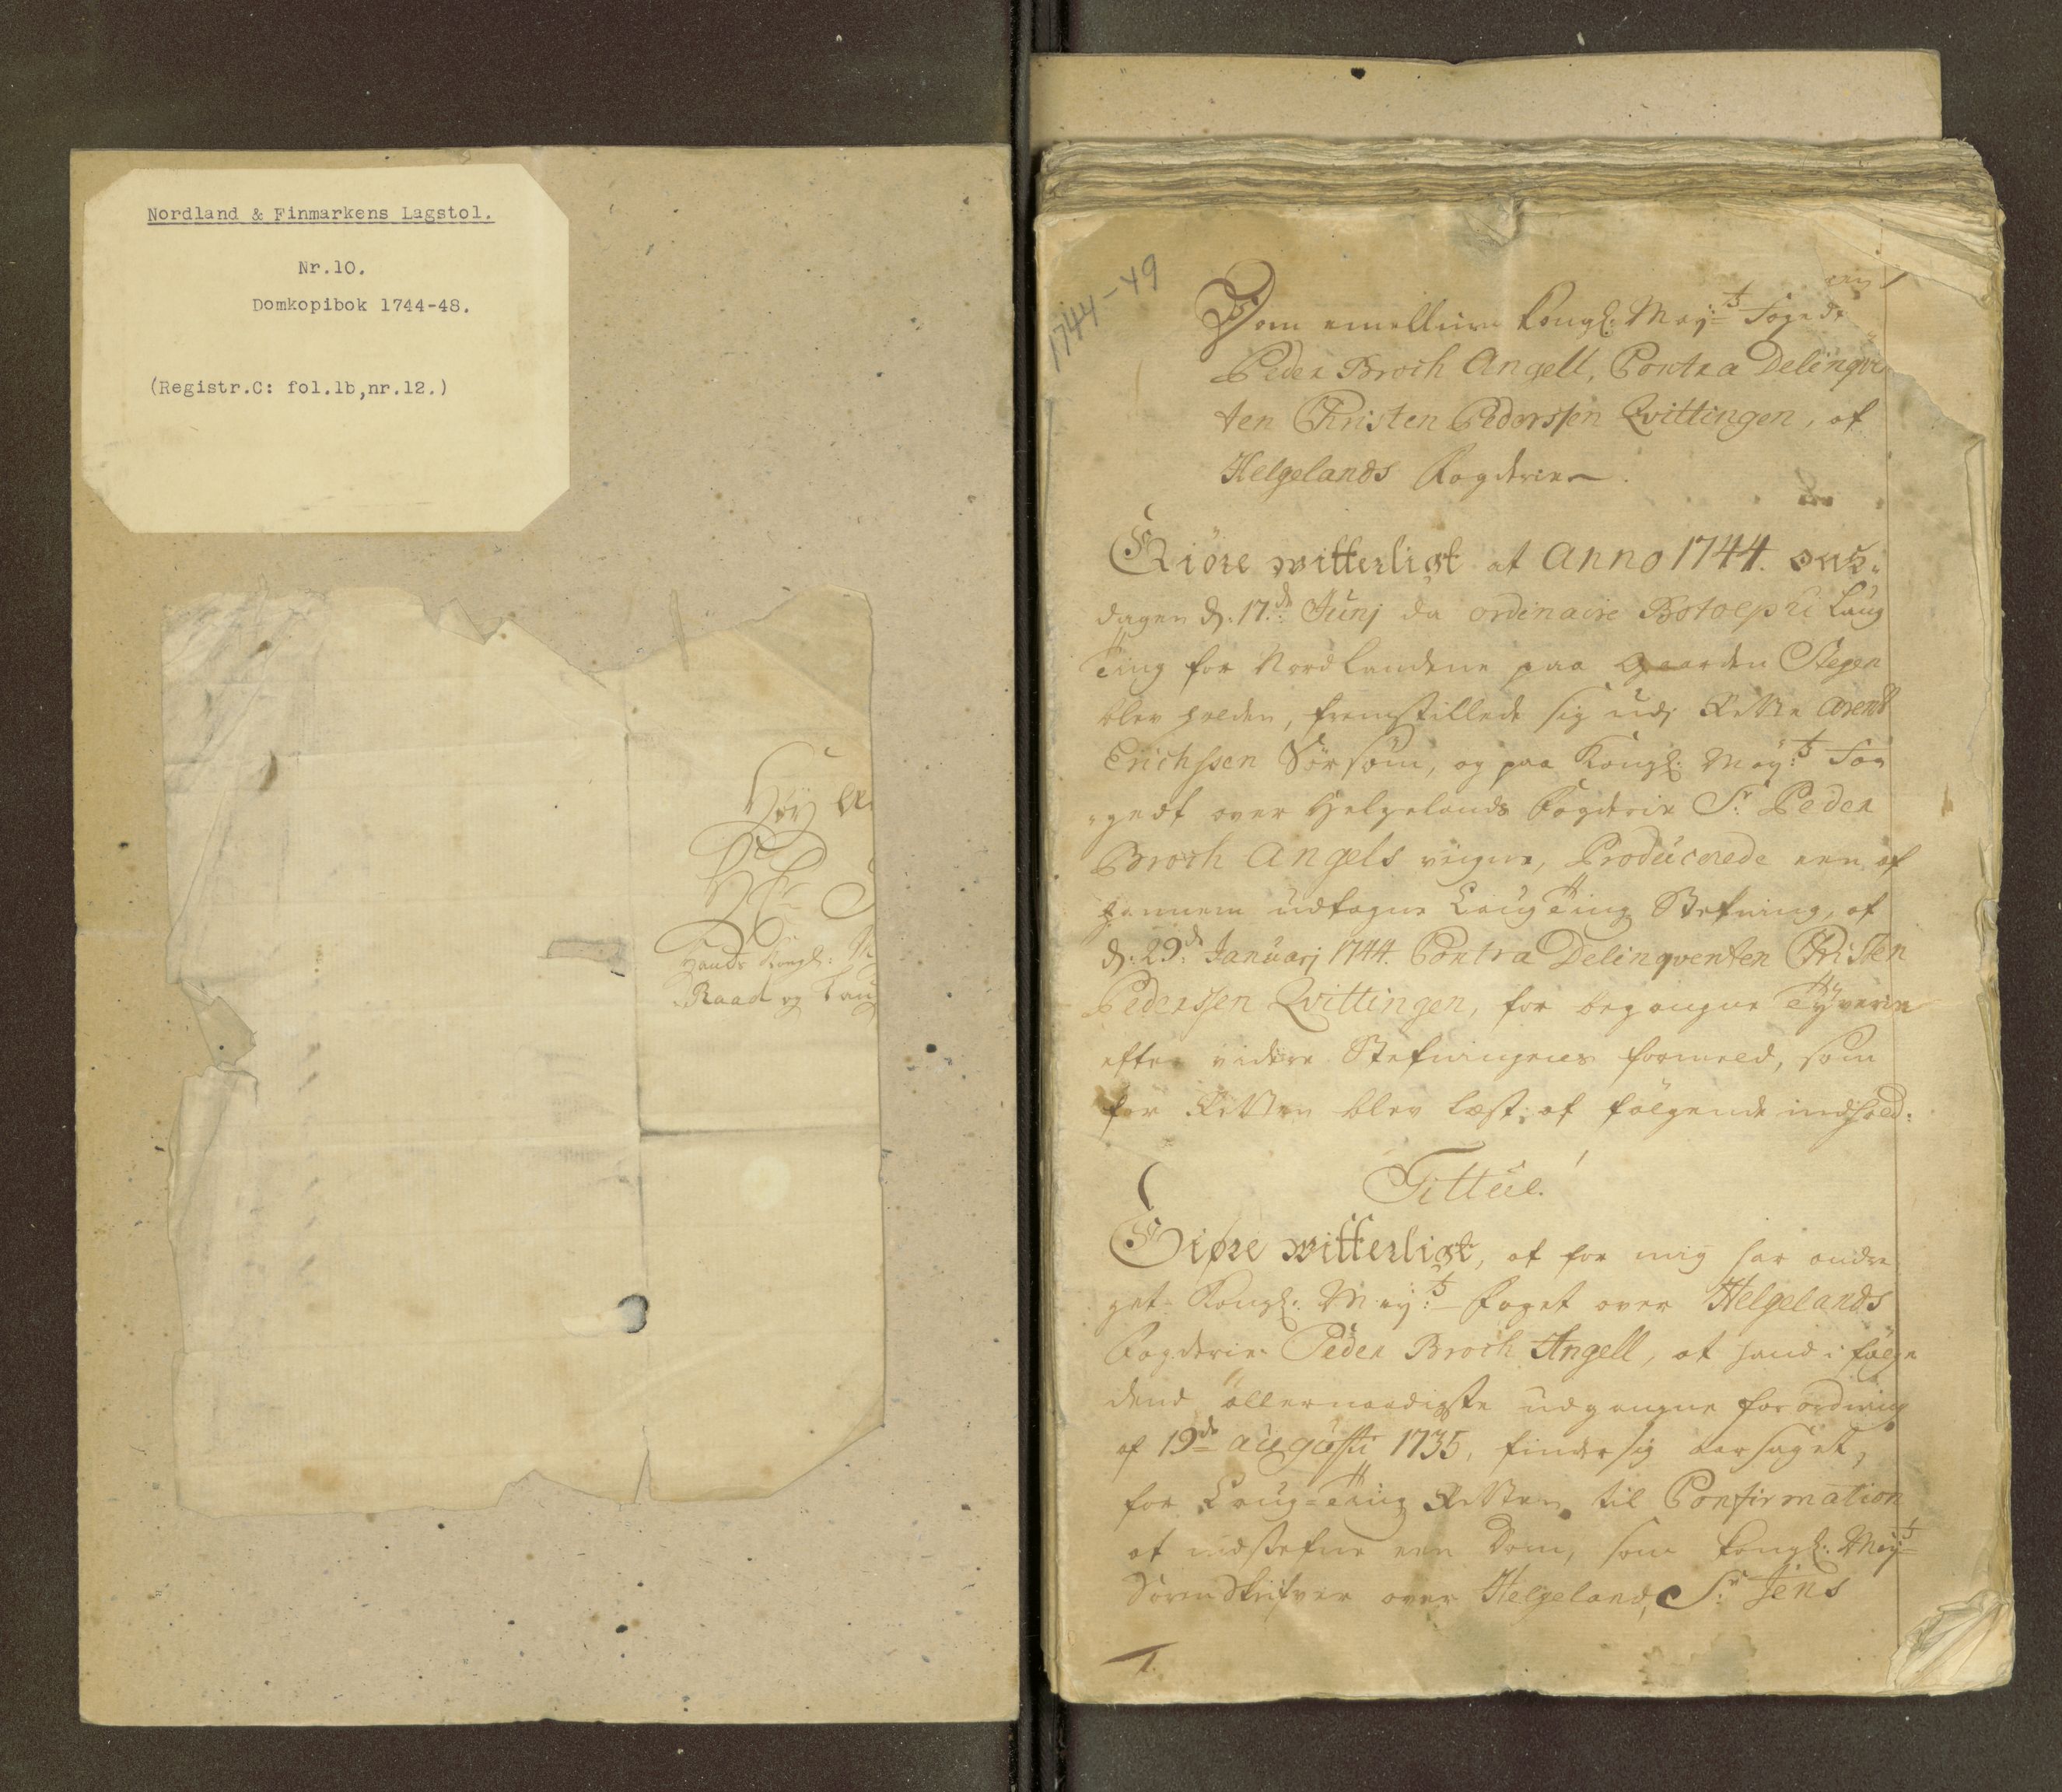 Nordland & Finmarkens Lagstol.
Nr.10.
Domkopibok 1744-48.
(Registr.C: fol.1b,nr.12.)
Høy
Hr
Hands Kongl:
Raad og Laug
1744-49
Dom emellum Kongl: May:ts Fogedt
Peder Broch Angell, Contra Delinqve
ten Christen Pederssen Qvittingen, af
Helgelands Fogderie.
Giöre witterligt at Anno 1744. ons:
dagen d. 17de Junj da ordinaire Botolphi Laug
Ting for Nordlandene paa Gaarden Stegen
blev holden, fremstillede sig udj Retten Arent
Erichssen Sörsöm, og paa Kongl: May:ts Fo
gedt over Helgelands Fogderie Sr. Peder
Broch Angels vegne, Producerede een af
hannem udtagne Laug Ting Stefning, af
d. 29de Januarj 1744. Contra Delinqventen Christen
Pederssen Qvittingen, for begangne Tyverie
efter videre Stefningens formeld, som
for Retten blev læst, af fölgende indhold:
Tittul!
Giöre witterligt, at for mig har andra
get Kongl: May:ts Foget over Helgelands
Fogderie Peder Broch Angell, at hand i fölge
dend allernaadigste udgangne forordning
af 19de augusti 1735, finder sig aarsaget,
for Laug-Ting Retten til Confirmation
at indstefne een Dom, som Kongl: May:ts
Sorenskrifver over Helgeland, Sr. Jens
1.